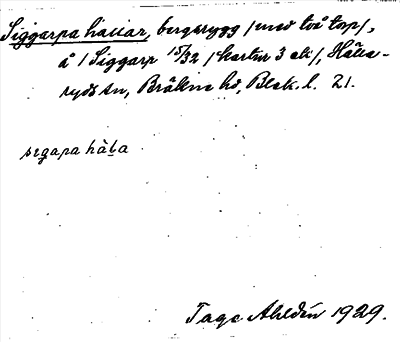 Siggarpa hallar, bergsrygg /med två torp/,
å / Siggarp 15/32 / kartur 3 ali/, Hälla-
ryds sn, Bräkne hd, Blek. l. 21.
sɪgapa hàla
Tage Ahldén 1929.